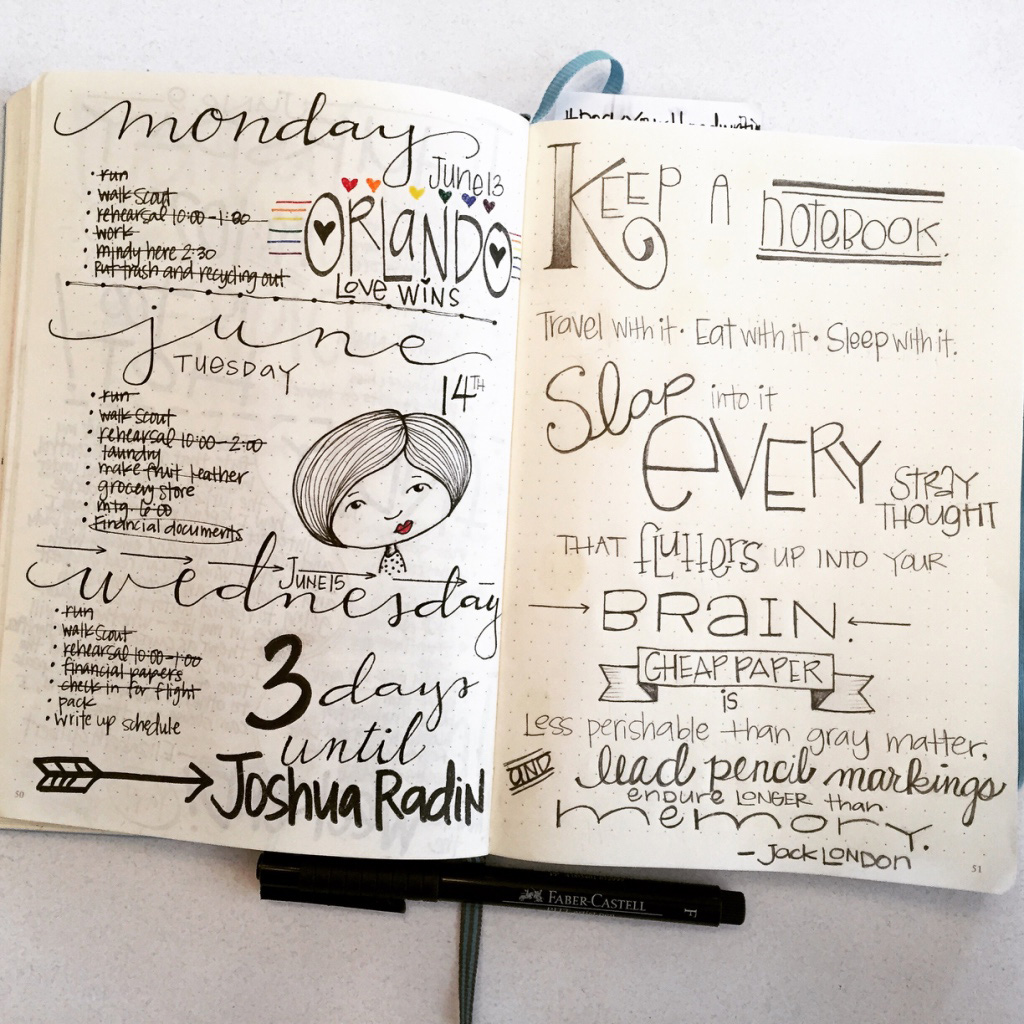 monday
June 13
• run
• walk Scout
• rehearsal 10:00-1:00
• work
• mindy here 2:30
• Put trash and recycling out
ORLANDO
LOVE WINS
june
TUESDAY
14TH
• run
• walk Scout
• rehearsal 10:00-2:00
• laundry
• make fruit leather
• grocery store
• mtg. 6:00
• Financial documents
JUNE 15
wednesday
• run
• walk Scout
• rehearsal 10:00-1:00
• financial papers
• check in for flight
• pack
• write up schedule
3 days
until
Joshua Radin
50
KEEP A notebook.
Travel with it • Eat with it • Sleep with it.
Slap into it
eVERY STRAY
THOUGHT
THAT flutters UP INTO YOUR
BRaIN.
CHEAP PAPER
is
Less perishable than gray matter,
AND lead pencil markings
enDURE LONGER than
memory.
– Jack LONDON
51
FABER-CASTELL
F